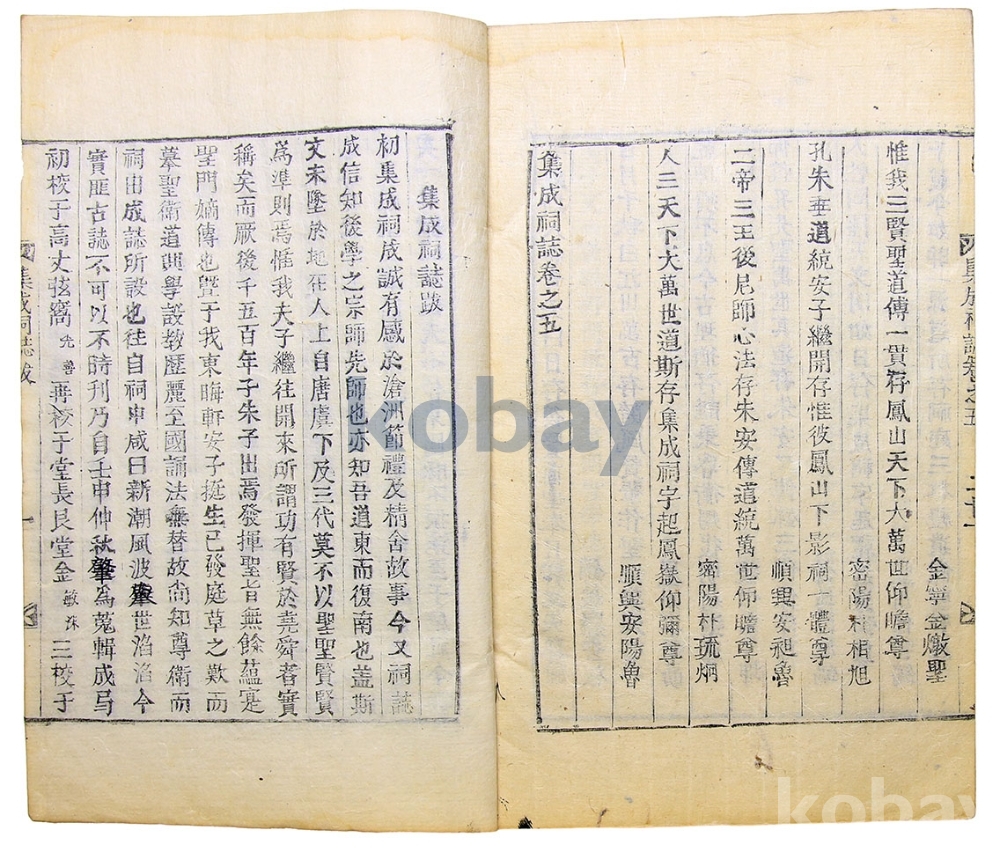 金寧金燉聖
惟我三賢聖道傳一貫存鳳山天下大萬世仰瞻尊
密陽朴相旭
孔朱垂道統安子繼開存惟彼鳳山下影祠一體尊
順興安昶魯
二帝三王後尼師心法存朱安傳道統萬世仰瞻尊
密陽朴琉炯
人三天下大萬世道斯存集成祠字起鳳嶽仰彌尊
順興安陽魯
集成祠誌卷之五
集成祠誌跋
初集成祠成誠有感於滄洲節禮及精舍故事今又祠誌
成信知後學之宗師先師也亦知吾道東而復南也盖斯
文未墜於地在人上自唐虞下及三代莫不以聖聖賢賢
爲準則焉惟我夫子繼往開來所謂功有賢於堯舜者實
稱矣而厥後千五百年子朱子出焉發揮聖旨無餘蘊寔
聖門嫡傳也曁于我東晦軒安子挺生已發庭草之歎而
摹聖衛道興學設教歷麗至國諭法無替故尙知尊衛而
祠由成誌所設也往自祠申咸曰新潮風波擧世滔滔今
實匪古誌不可以不時刊乃自壬申仲秋肇爲蒐輯成㐧
初校于高丈弦窩光魯再校于堂長艮堂金敏洙三校于
集成祠誌跋
一
kobay
kobay